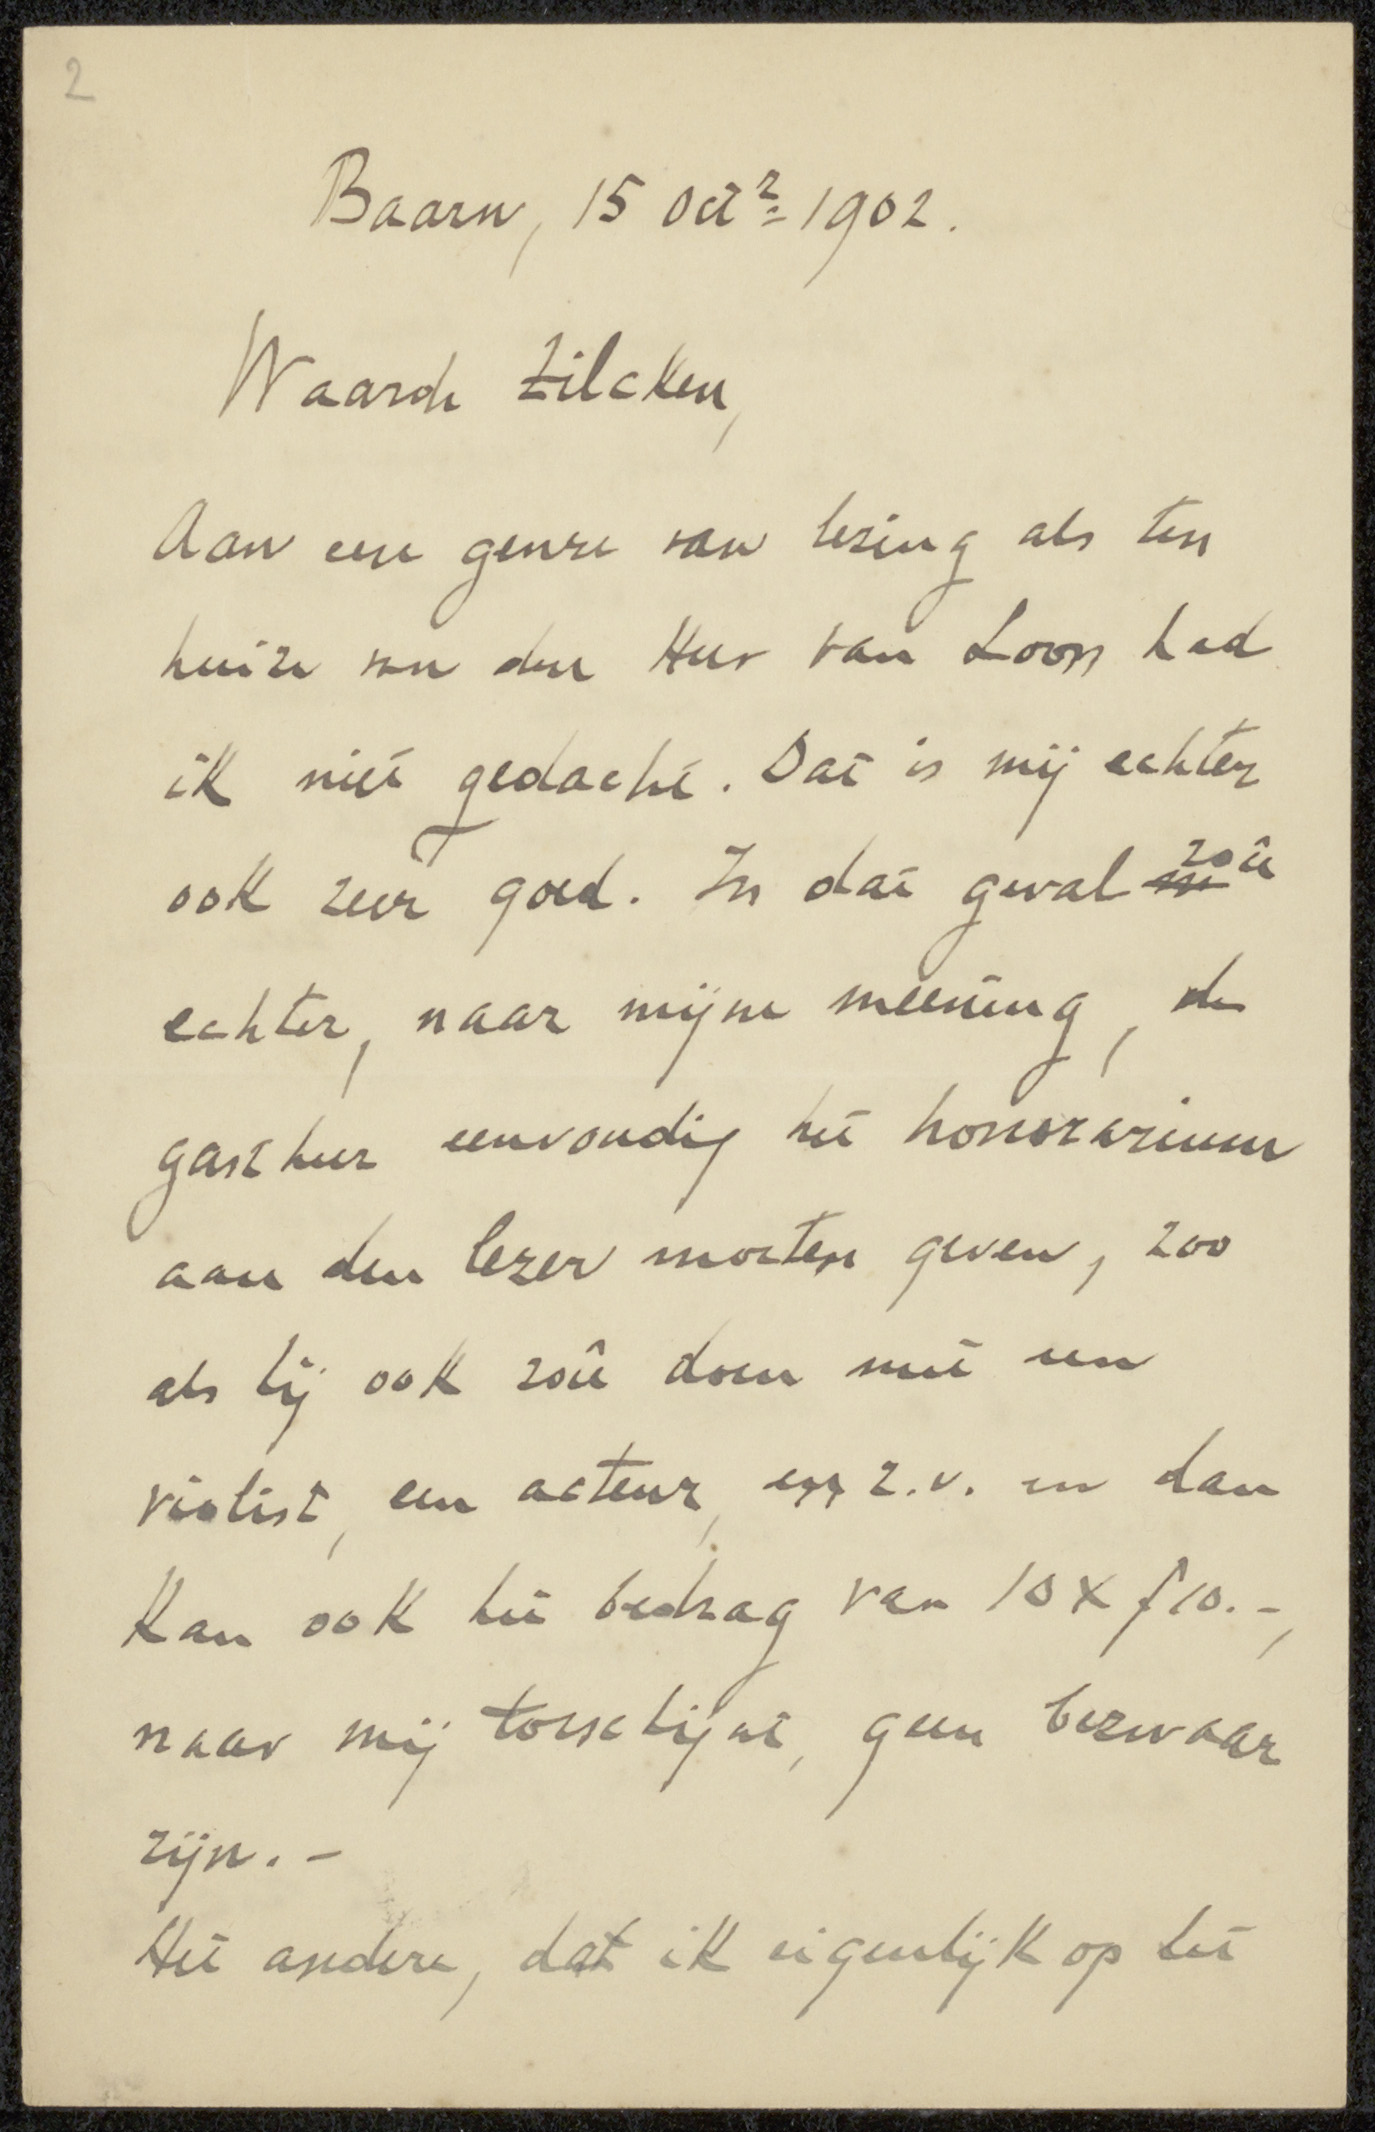 2
Baarn, 15 Oct r 1902.
Waarde Zilcken,
Aan een genre van lezing als ten
huize van den Heer van Loon had
ik niet gedacht. Dat is mij echter
ook zeer goed. In dat geval zoû
echter, naar mijne meening, de
gastheer eenvoudig het honorarium
aan den lezer moeten geven, zoo
als hij ook zoû doen met een
violist, een acteur, enz. z.v. en dan
kan ook het bedrag van 10 x f 10.-,
naar mij toeschijnt, geen bezwaar
zijn. -
Het andere, dat ik eigenlijk op het